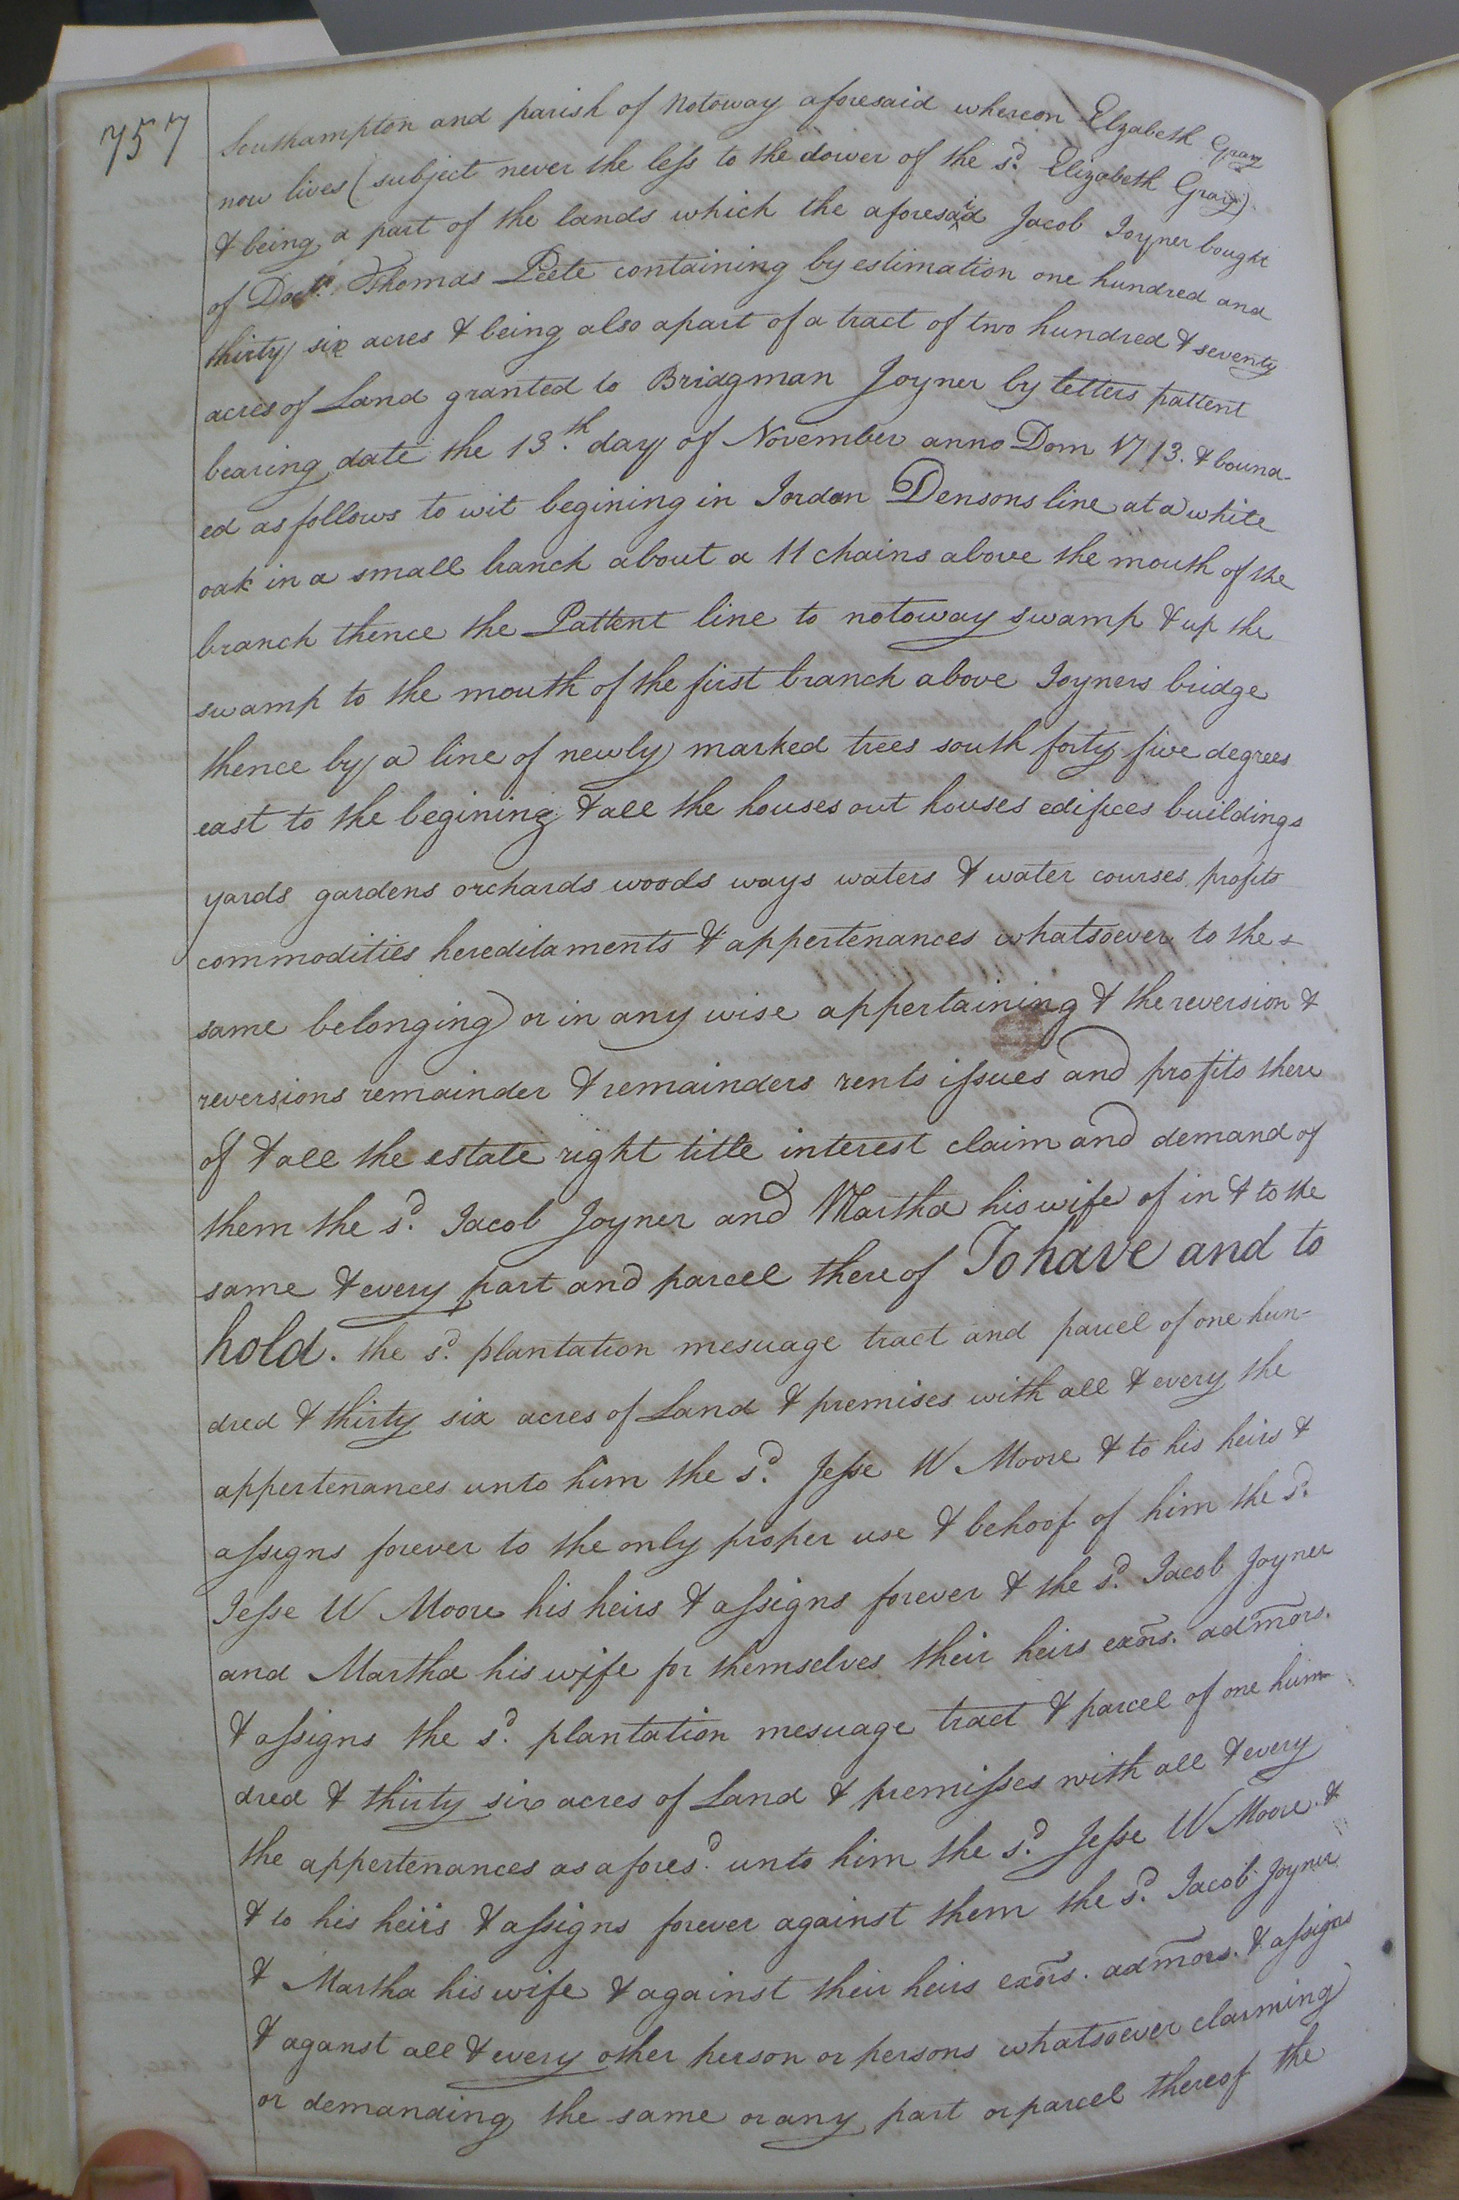 757
Southampton and parish of Notoway aforesaid whereon Elzabeth Gray
now lives (subject never the less to the dower of the sd. Elizabeth Gray)
& being a part of the lands which the aforesaid Jacob Joyner bought
of Doctr. Thomas Peete containing by estimation one hundred and
thirty six acres & being also apart of a tract of two hundred & seventy
acres of Land granted to Bridgman Joyner by letters pattent
bearing date the 13.th day of November anno Dom 1713. & bound-
ed as follows to wit begining in Jordan Densons line at a white
oak in a small branch about a 11 chains above the mouth of the
branch thence the Pattent line to notoway swamp & up the
swamp to the mouth of the first branch above Joyners bridge
thence by a line of newly marked trees south forty five degrees
east to the begining & all the houses out houses edifices buildings
yards gardens orchards woods ways waters & water courses profits
commodities hereditaments & appertenances whatsoever to the
same belonging or in any wise appertaining & the reversion &
reversions remainder & remainders rents issues and profits there
of & all the estate right title interest claim and demand of
them the sd. Jacob Joyner and Martha his wife of in & to the
same & every part and parcel there of To have and to
hold. the sd. plantation mesuage tract and parcel of one hun-
dred & thirty six acres of Land & premises with all & every the
appertenances unto him the sd. Jesse W Moore & to his heirs &
assigns forever to the only proper use & behoof of him the sd.
Jesse W Moore his heirs & assigns forever & the sd. Jacob Joyner
and Martha his wife for themselves their heirs exōrs. admōrs.
& assigns the sd. plantation mesuage tract & parcel of one hun-
dred & thirty six acres of Land & premisses with all & every
the appertenances as afores.d unto him the sd. Jesse W Moore &
& to his heirs & assigns forever against them the sd. Jacob Joyner
& Martha his wife & against their heirs exōrs. admōrs. & assigns
& aganst all & every other person or persons whatsoever claiming
or demanding the same or any part or parcel thereof the